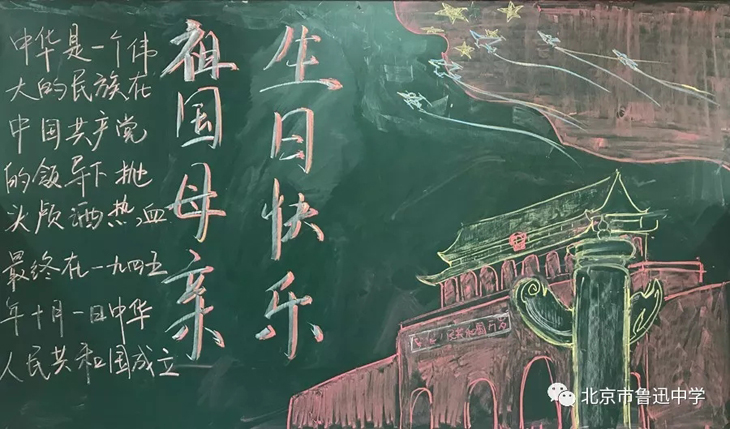 中华是一个伟
大的民族在
中国共产党
的领导下抛
头颅洒热血
最终在一九四五
年十月一日中华
人民共和国成立
祖国母亲
生日快乐
北京市鲁迅中学